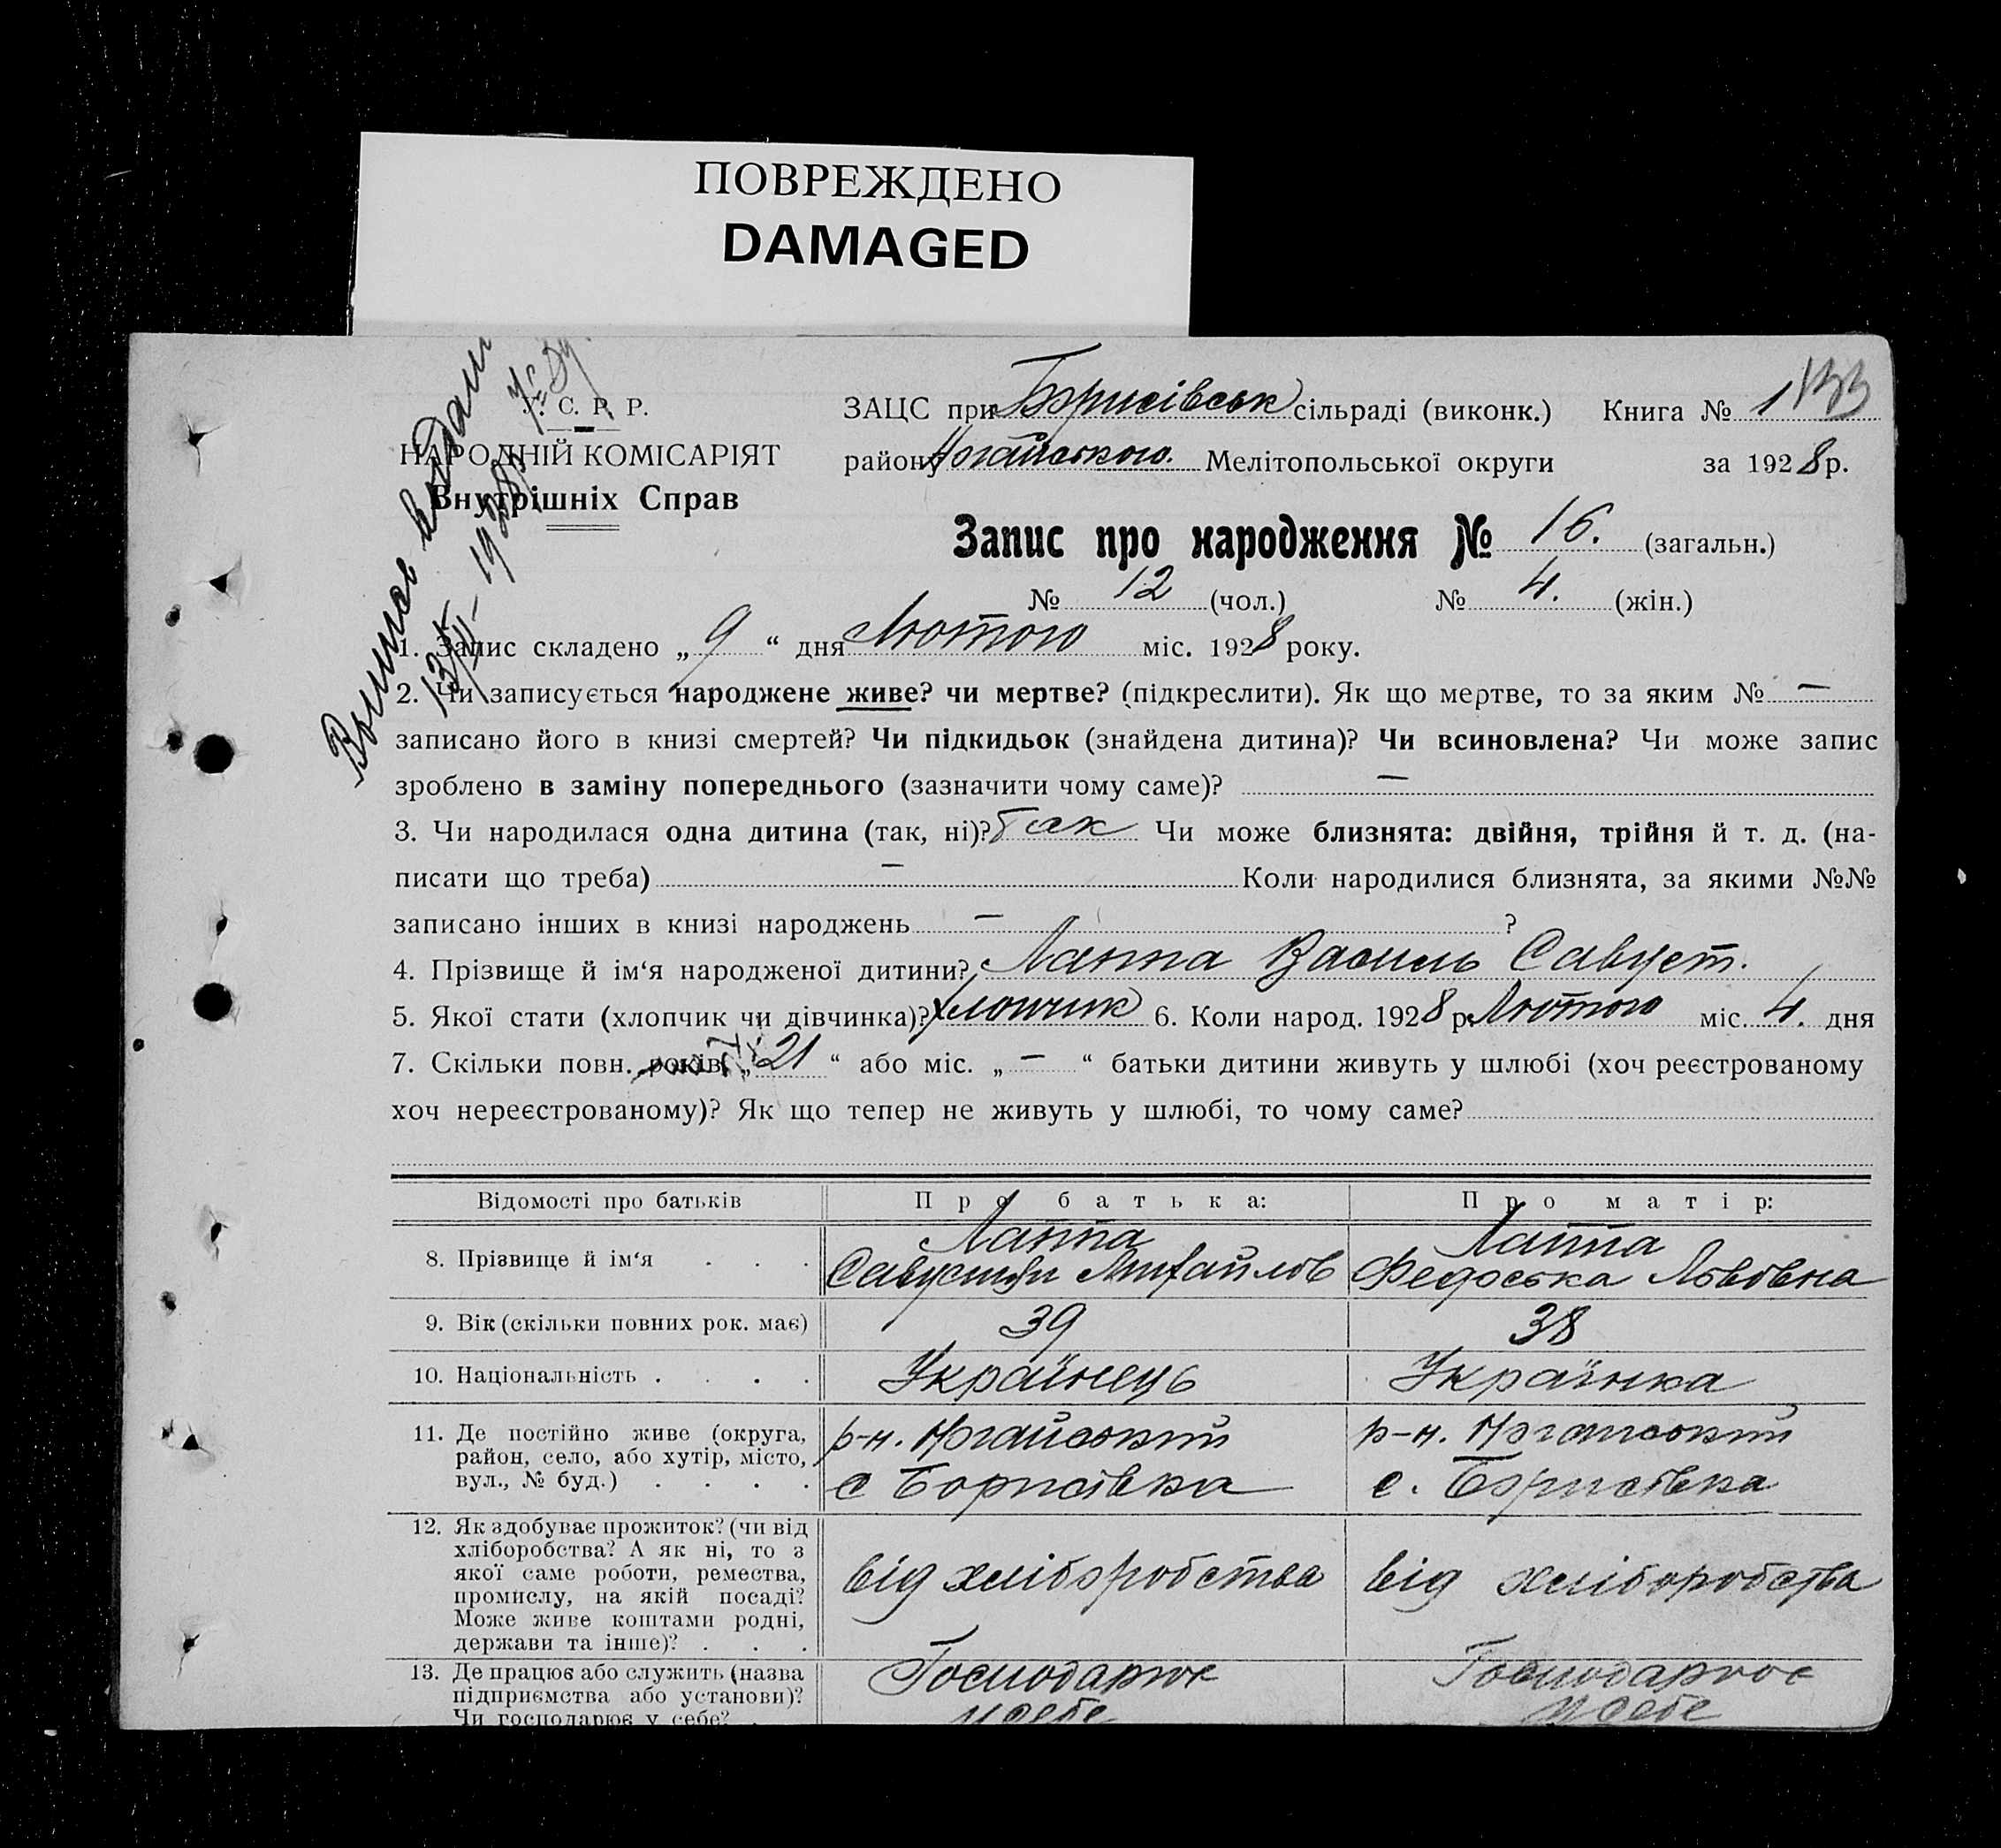 ПОВРЕЖДЕНО
DAMAGED
С. Р. Р.
НАРОДНІЙ КОМІСАРІЯТ
Внутрішніх Справ
Выпись выдан
13/II- 1928р.
ЗАЦС при Борисівськ сільраді (виконк.) Книга № 1 133
району Мелітопольської округи за 1928 р.
Запис про народження № 16. (загальн.)
№ 12 (чол.) № 4. (жін.)
1. Запис складено „ 9 “ дня Лютого міс. 1928 року.
2. Чи записується народжене живе? чи мертве? (підкреслити). Як що мертве, то за яким № —
записано його в книзі смертей? Чи підкидьок (знайдена дитина)? Чи всиновлена? Чи може запис
зроблено в заміну попереднього (зазначити чому саме)? —
3. Чи народилася одна дитина (так, ні)? Так Чи може близнята: двійня, трійня й т. д. (на-
писати що треба) — Коли народилися близнята, за якими №№
записано інших в книзі народжень — ?
4. Прізвище й ім‘я народженої дитини? Лаппа Василь Савуст.
5. Якої стати (хлопчик чи дівчинка)? Хлопчик 6. Коли народ. 1928 р. Лютого міс. 4. дня
7. Скільки повн. років „ 21 “ або міс. „ — “ батьки дитини живуть у шлюбі (хоч реєстрованому
хоч нереєстрованому)? Як що тепер не живуть у шлюбі, то чому саме?
Відомості про батьків Про батька: Про матір:
8. Прізвище й ім‘я . . . Лаппа Михайлов Лаппа Федоська Львовна
9. Вік (скільки повних рок. має) 39 38
10. Національність . . . . Українець Українка
11. Де постійно живе (округа,
район, село, або хутір, місто,
вул., № буд.) . . . .
р-н.
с Борисівка
р-н.
с. Борисівка
12. Як здобуває прожиток? (чи від
хліборобства? А як ні, то з
якої саме роботи, ремества,
промислу, на якій посаді?
Може живе коштами родні,
держави та інше)? . . .
від хліборобства
від хліборобства
13. Де працює або служить (назва
підприємства або установи)?
Чи господарює у себе? .
Господарює
у себе
Господарює
у себе